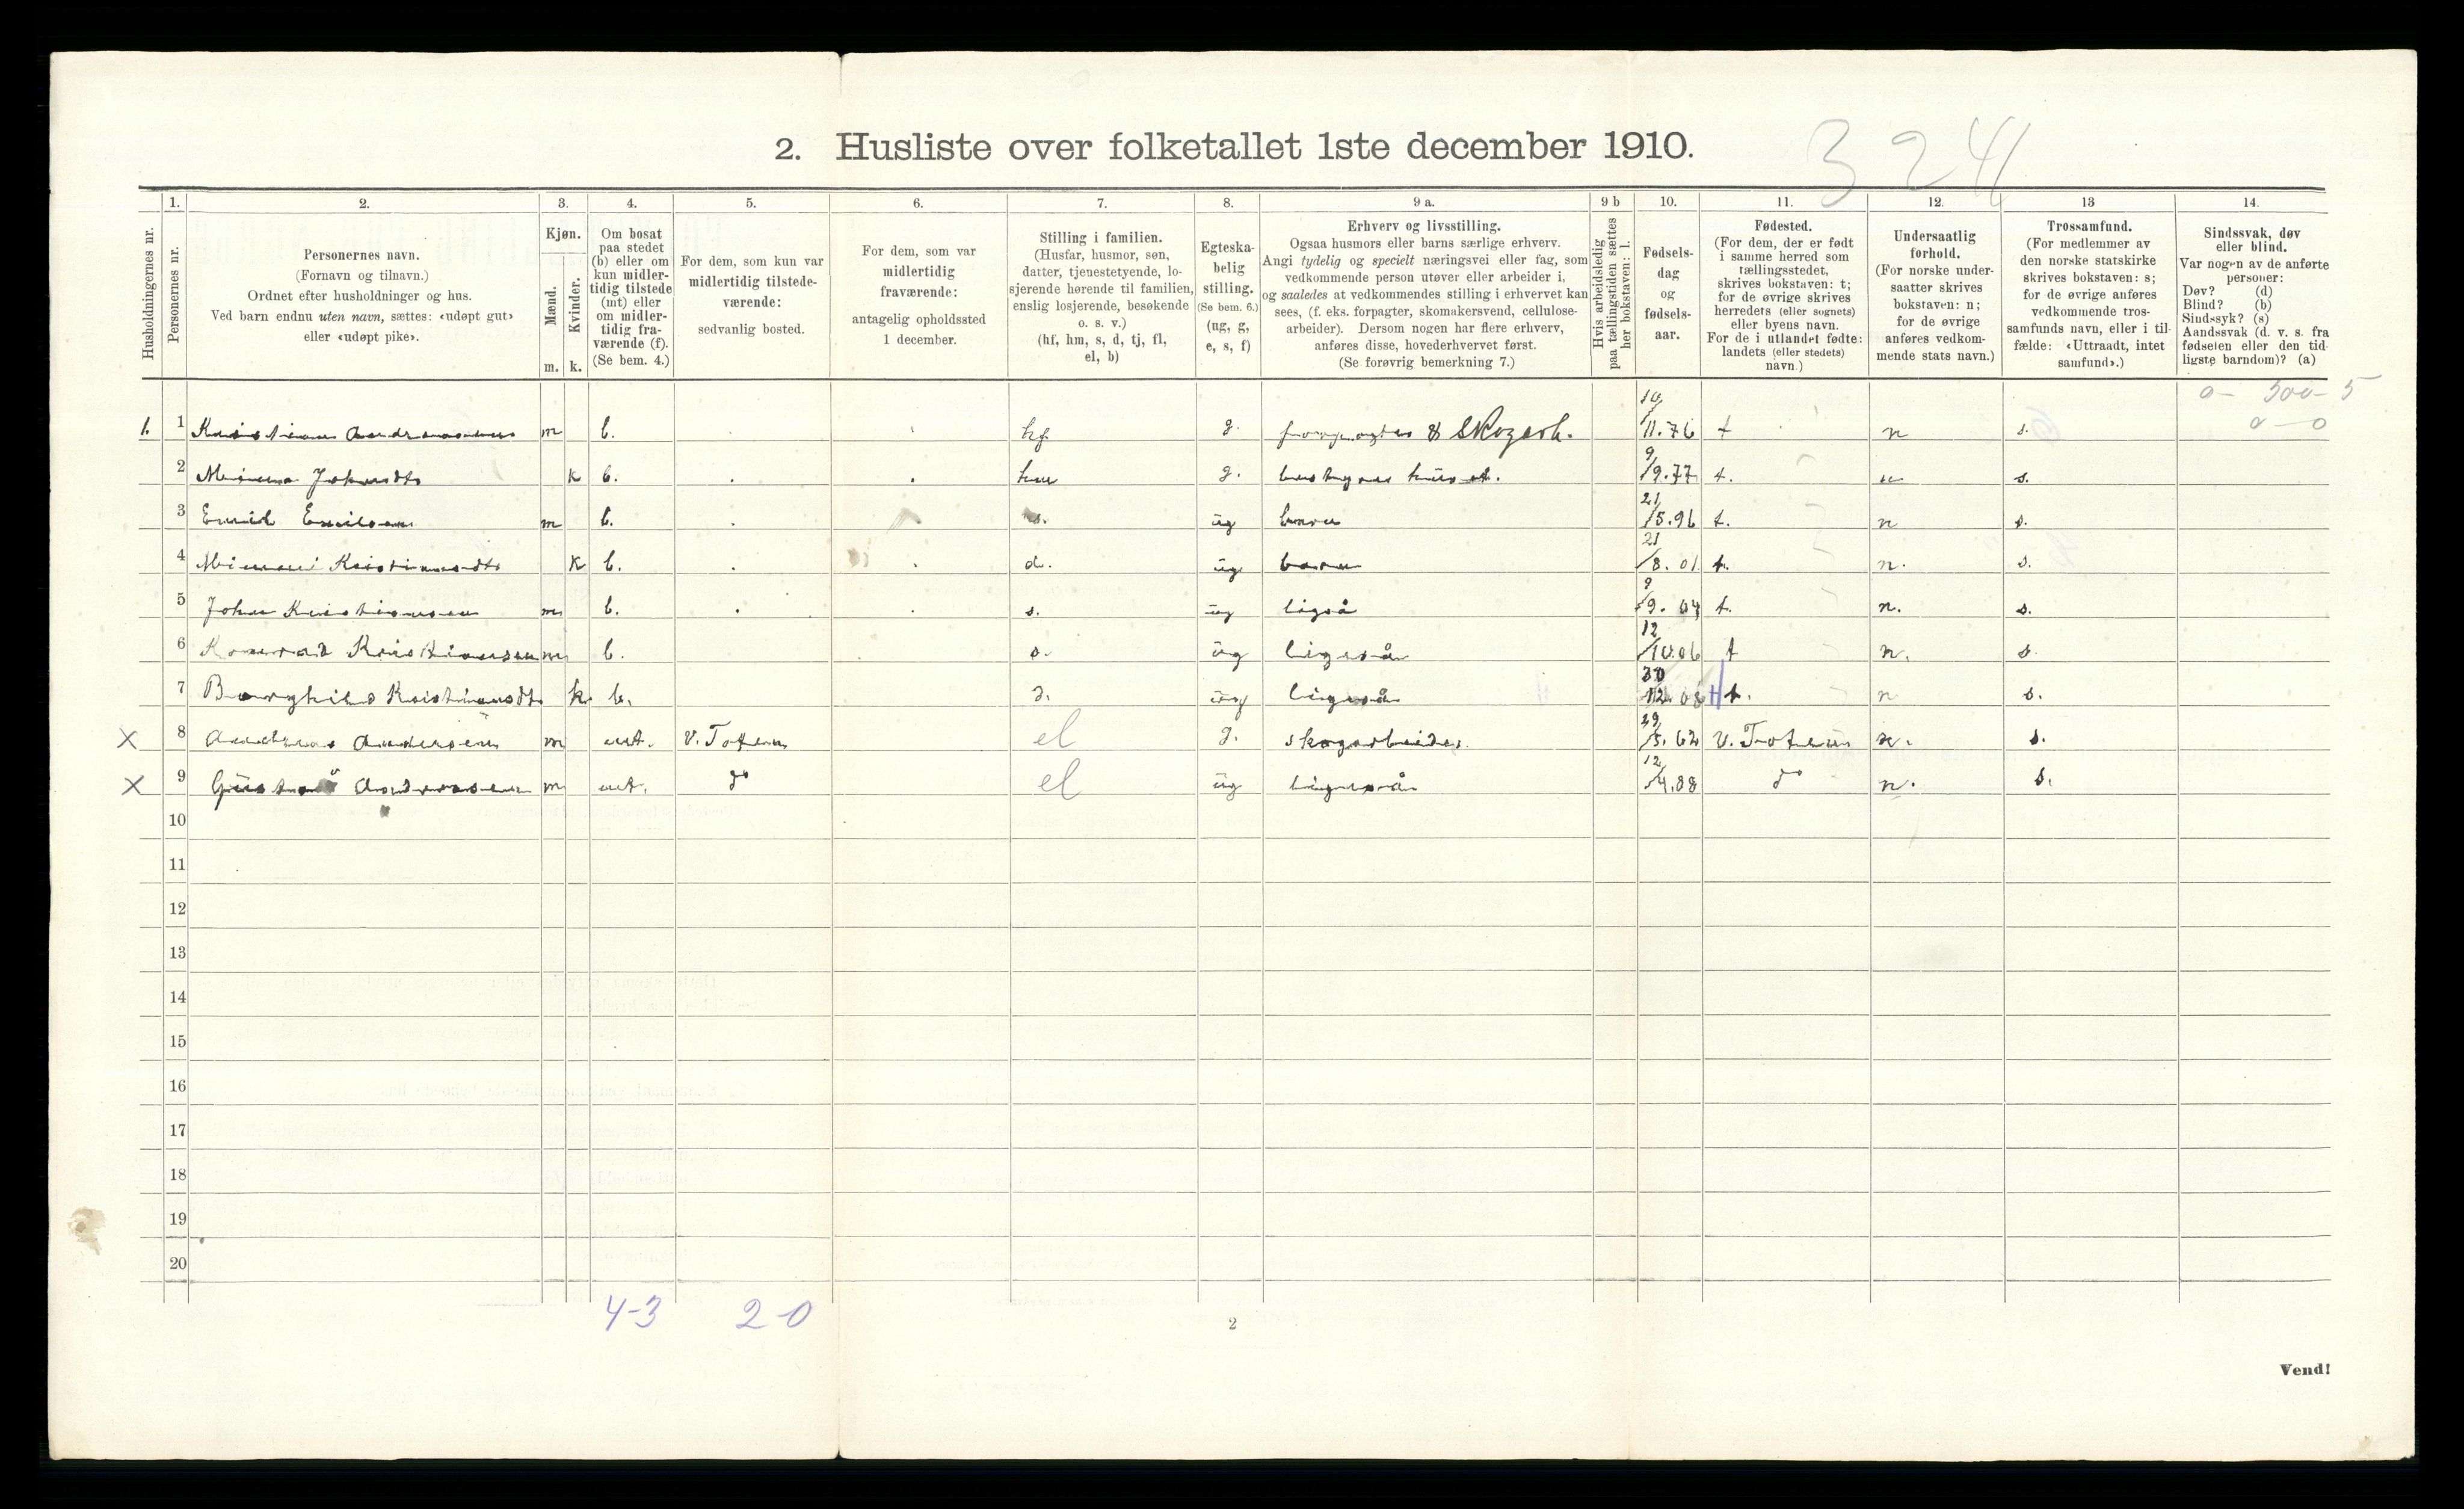 2. Husliste over folketallet 1ste december 1910.
324
Husholdningernes nr.
1. Personernes nr.
2. Personernes navn.
(Fornavn og tilnavn.)
Ordnet efter husholdninger og hus.
Ved barn endnu uten navn, sættes: «udøpt gut»
eller «udøpt pike».
3. Kjøn.
Mænd. m.
Kvinder. k.
4. Om bosat
paa stedet
(b) eller om
kun midler-
tidig tilstede
(mt) eller
om midler-
tidig fra-
værende (f).
(Se bem. 4.)
5. For dem, som kun var
midlertidig tilstede-
værende:
sedvanlig bosted.
6. For dem, som var
midlertidig
fraværende:
antagelig opholdssted
1 december.
7. Stilling i familien.
(Husfar, husmor, søn,
datter, tjenestetyende, lo-
sjerende hørende til familien,
enslig losjerende, besøkende
o. s. v.)
(hf, hm, s, d, tj, fl,
el, b)
8. Egteska-
belig
stilling.
(Se bem. 6.)
(ug, g,
e, s, f)
9 a. Erhverv og livsstilling.
Ogsaa husmors eller barns særlige erhverv.
Angi tydelig og specielt næringsvei eller fag, som
vedkommende person utøver eller arbeider i,
og saaledes at vedkommendes stilling i erhvervet kan
sees, (f. eks. forpagter, skomakersvend, cellulose-
arbeider). Dersom nogen har flere erhverv,
anføres disse, hovederhvervet først.
(Se forøvrig bemerkning 7.)
9 b Hvis arbeidsledig
paa tællingstiden sættes
her bokstaven: l.
10. Fødsels-
dag
og
fødsels-
aar.
11. Fødested.
(For dem, der er født
i samme herred som
tællingsstedet,
skrives bokstaven: t;
for de øvrige skrives
herredets (eller sognets)
eller byens navn.
For de i utlandet fødte:
landets (eller stedets)
navn.)
12. Undersaatlig
forhold.
(For norske under-
saatter skrives
bokstaven: n;
for de øvrige
anføres vedkom-
mende stats navn.)
13 Trossamfund.
(For medlemmer av
den norske statskirke
skrives bokstaven: s;
for de øvrige anføres
vedkommende tros-
samfunds navn, eller i til-
fælde: «Uttraadt, intet
samfund».)
14. Sindssvak, døv
eller blind.
Var nogen av de anførte
personer:
Døv? (d)
Blind? (b)
Sindssyk? (s)
Aandssvak (d. v. s. fra
fødselen eller den tid-
ligste barndom)? (a)
0 - 500 - 5
0 - 0
1. 1 Kristian Andreassen m b. hf. g. forpagter & Skogarb. 10/11.76 t n s.
2 Minna Johnsdtr k b. hm g. bestyrer huset. 9/9.77 t. n s.
3 Emil Emilsen m b. s. ug barn 21/5.96 t. n s.
4 Minani Kristiansdtr k b. d. ug barn 21/8.01 t. n. s.
5 John Kristiansen m b. s. ug ligså 9/9.04 t. n. s.
6 Konrad Kristiansen m b. s. ug ligeså 12/10.06 t n. s.
7 Borghild Kristiansdtr k b. d. ug ligeså 30/12.08 t. n s.
X 8 Andreas Andersen m mt. V. Toten el g. skogarbeider 29/5.62 V. Toten n. s.
X 9 Gustav Andreassen m mt. do el ug ligeså 12/4.88 do n. s.
10
11
12
13
14
15
16
17
18
19
20
4-3 2-0
2
Vend!